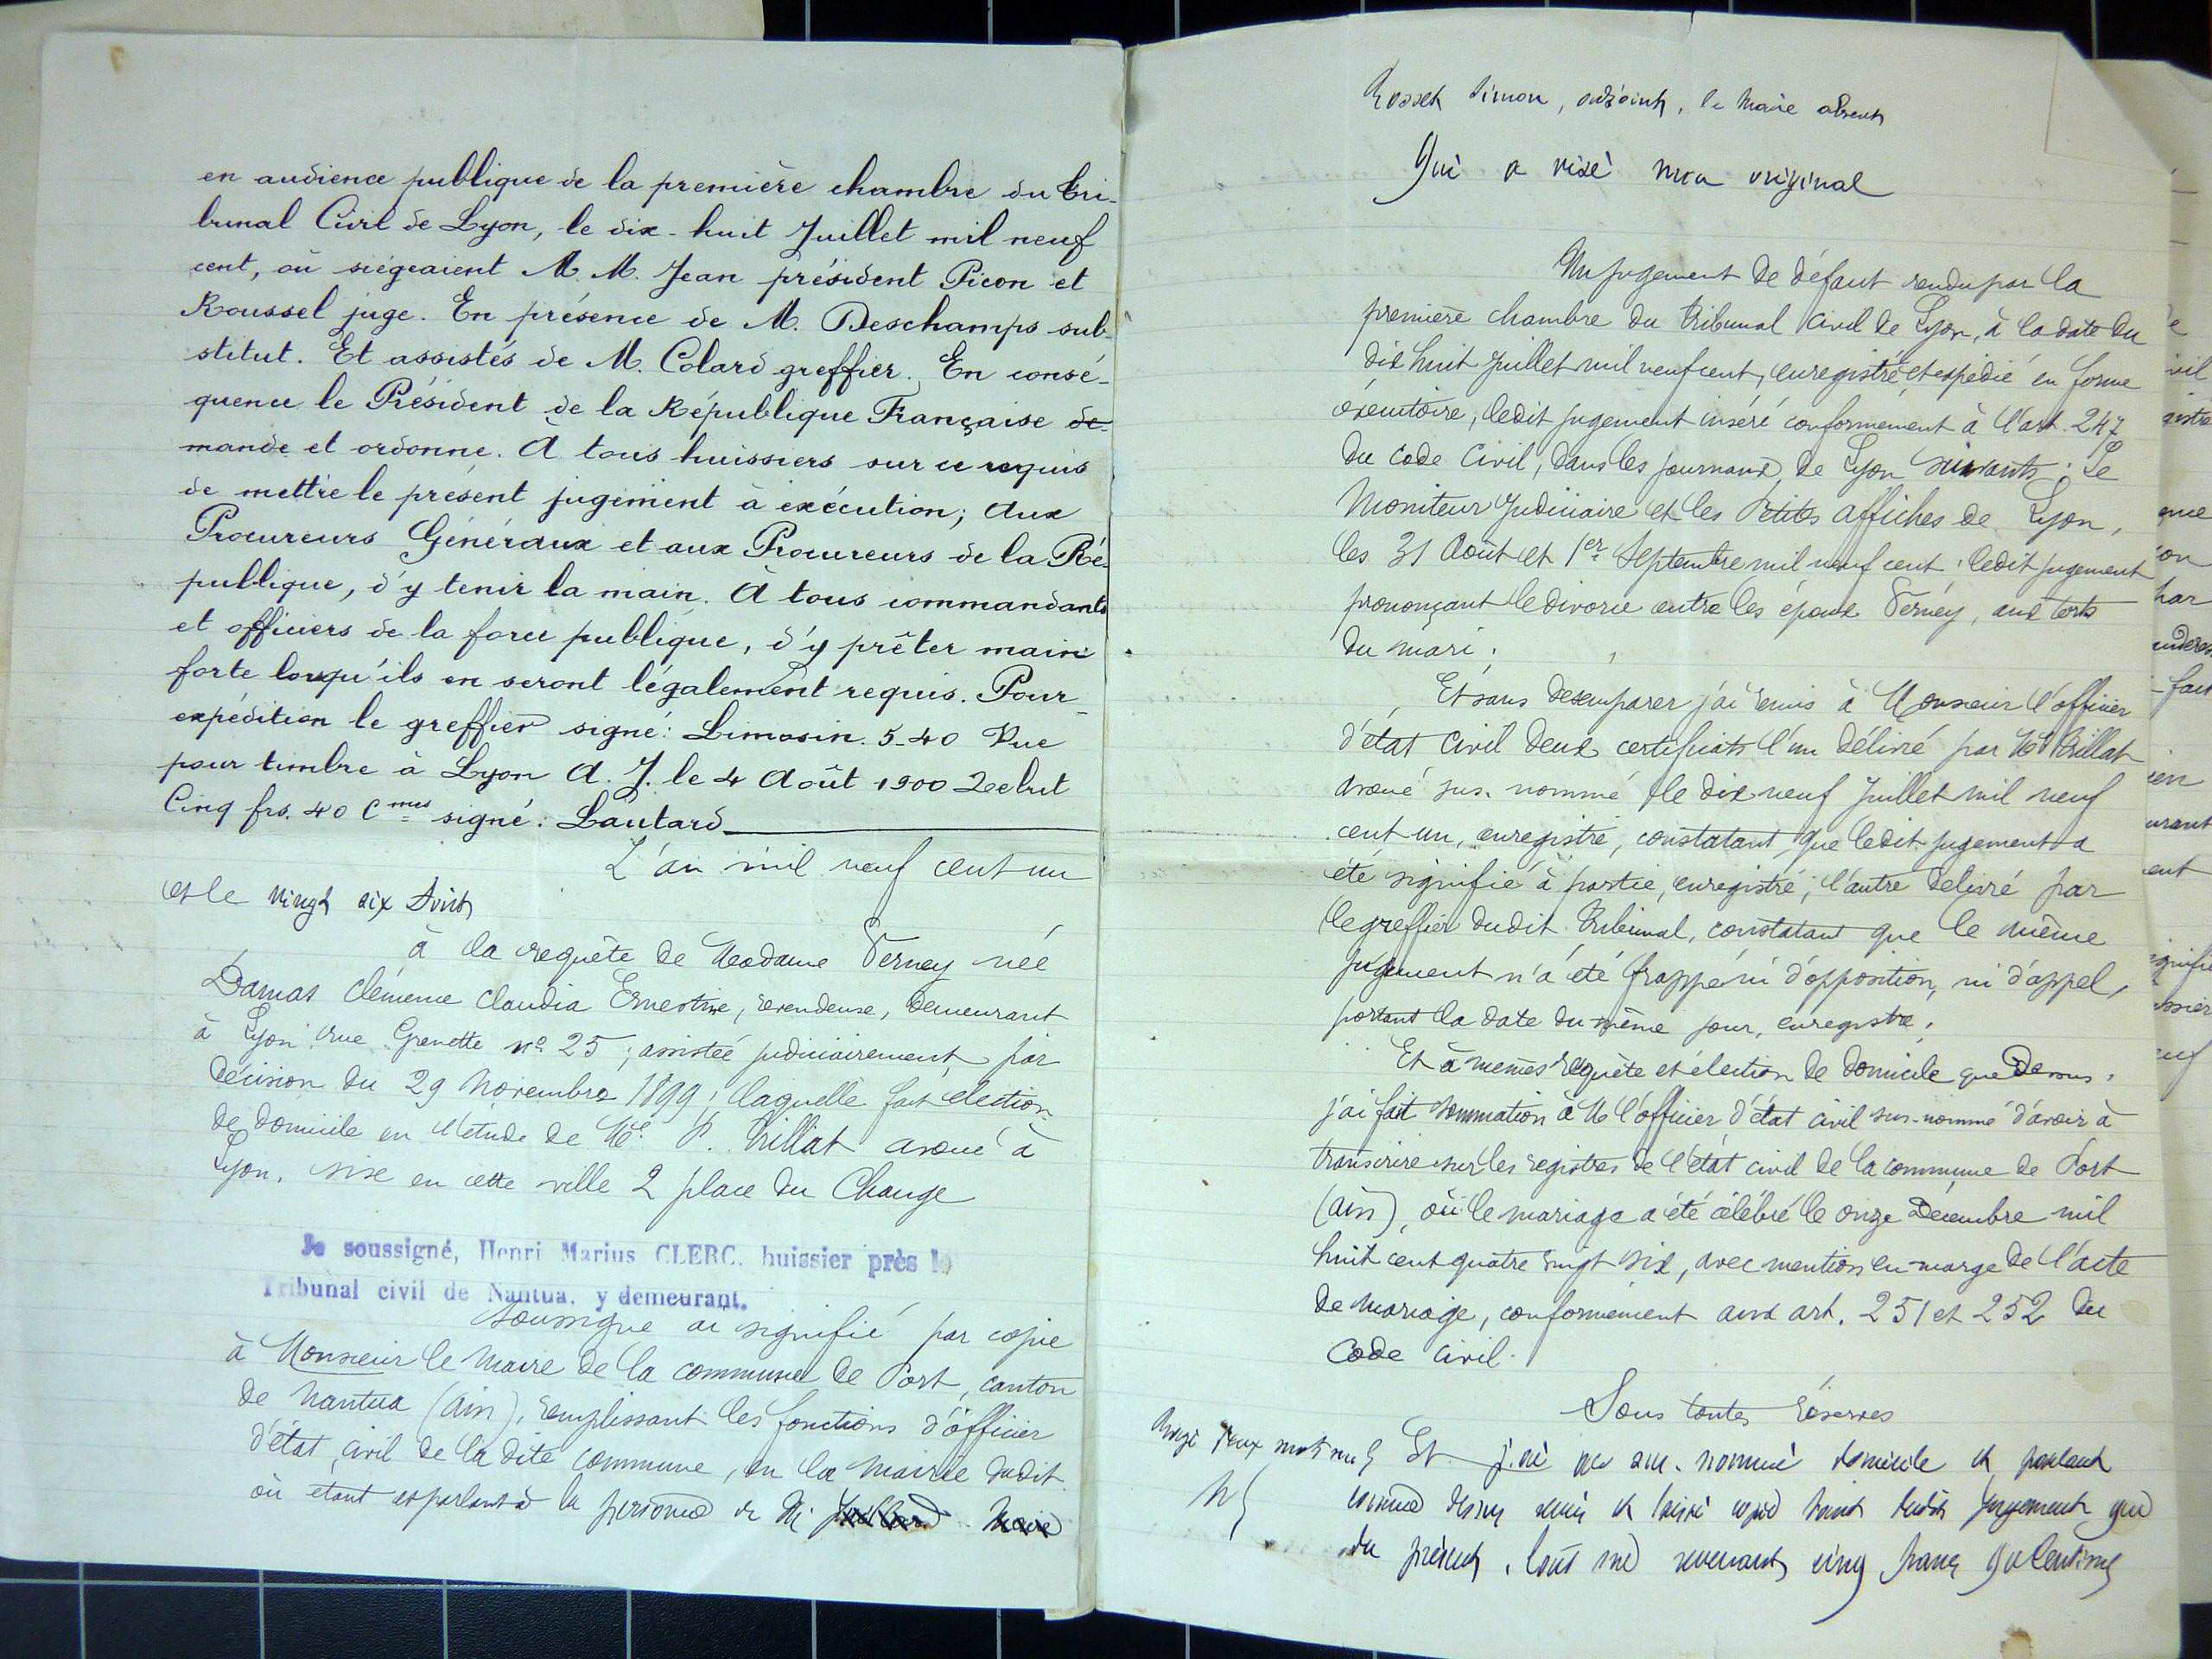 en audience publique de la première chambre du tri-
bunal Civil de Lyon, le dix-huit Juillet mil neuf
cent, où siégeaient M.M. Jean président Picon et
Roussel juge. En présence de M. Deschamps sub-
stitut. Et assistés de M. Colard greffier. En consé-
quence le Président de la République Française de-
mande et ordonne. A tous huissiers sur ce requis
de mettre le présent jugement à exécution; Aux
Procureurs Généraux et aux Procureurs de la Ré-
publique, d'y tenir la main. A tous commandants
et officiers de la force publique, d'y prêter main
forte lorsqu'ils en seront légalement requis. Pour
expédition le greffier signé: Limosin. 5-40 Vue
pour timbre à Lyon A.J. le 4 Août 1900
Cinq frs. 40 Cmes signé: Lautard
L'an mil neuf cent un
et le vingt six Août
à la requête de Madame Verney née
Damas Clémence Claudia Ernestine, revendeuse, demeurant
à Lyon rue Grenette no 25; assistée judiciairement par
décision du 29 Novembre 1899; laquelle fait élection
de domicile en l'étude de Me P. Trillat avoué à
Lyon, sise en cette ville 2 place du Change
Je soussigné, Henri Marius CLERC, huissier près le
Tribunal civil de Nantua, y demeurant.
soussigné ai signifié par copie
à Monsieur le Maire de la commune de Port, canton
de Nantua (Ain), remplissant les fonctions d'officier
d'état civil de la dite commune, en la Mairie dudit
où étant et parlant à la personne de Mr
Rosset Simon, adjoint, le Maire absent
Qui a visé mon original
Un jugement de défaut rendu par la
première chambre du tribunal civil de Lyon, à la date du
dix huit Juillet mil neuf cent, enregistré et expédié en forme
exécutoire, ledit jugement inséré conformément à l'art. 247
du Code Civil, dans les journaux de Lyon suivants: Le
Moniteur Judiciaire et les Petites Affiches de Lyon,
les 31 Août et 1er Septembre mil neuf cent; ledit jugement
prononçant le divorce entre les époux Verney, aux torts
du mari.
Et sans désemparer j'ai remis à Monsieur l'officier
d'état civil deux certificats l'un délivré par Me Trillat
avoué sus-nommé le dix neuf Juillet mil neuf
cent un, enregistré, constatant que ledit jugement a
été signifié à partie, enregistré; l'autre délivré par
le greffier dudit Tribunal, constatant que le même
jugement n'a été frappé ni d'opposition, ni d'appel,
portant la date du même jour, enregistré.
Et à mêmes requête et élection de domicile que dessus,
j'ai fait sommation à M l'officier d'état civil sus-nommé d'avoir à
transcrire sur les registres de l'état civil de la commune de Port
(Ain), où le mariage a été célébré le onze Décembre mil
huit cent quatre vingt six, avec mention en marge de l'acte
de mariage, conformément aux art. 251 et 252 du
Code Civil.
Sous toutes réserves
Et j'ai au sus-nommé domicile et parlant
comme dessus remis et laissé copie tant dudit jugement que
du présent. Coût